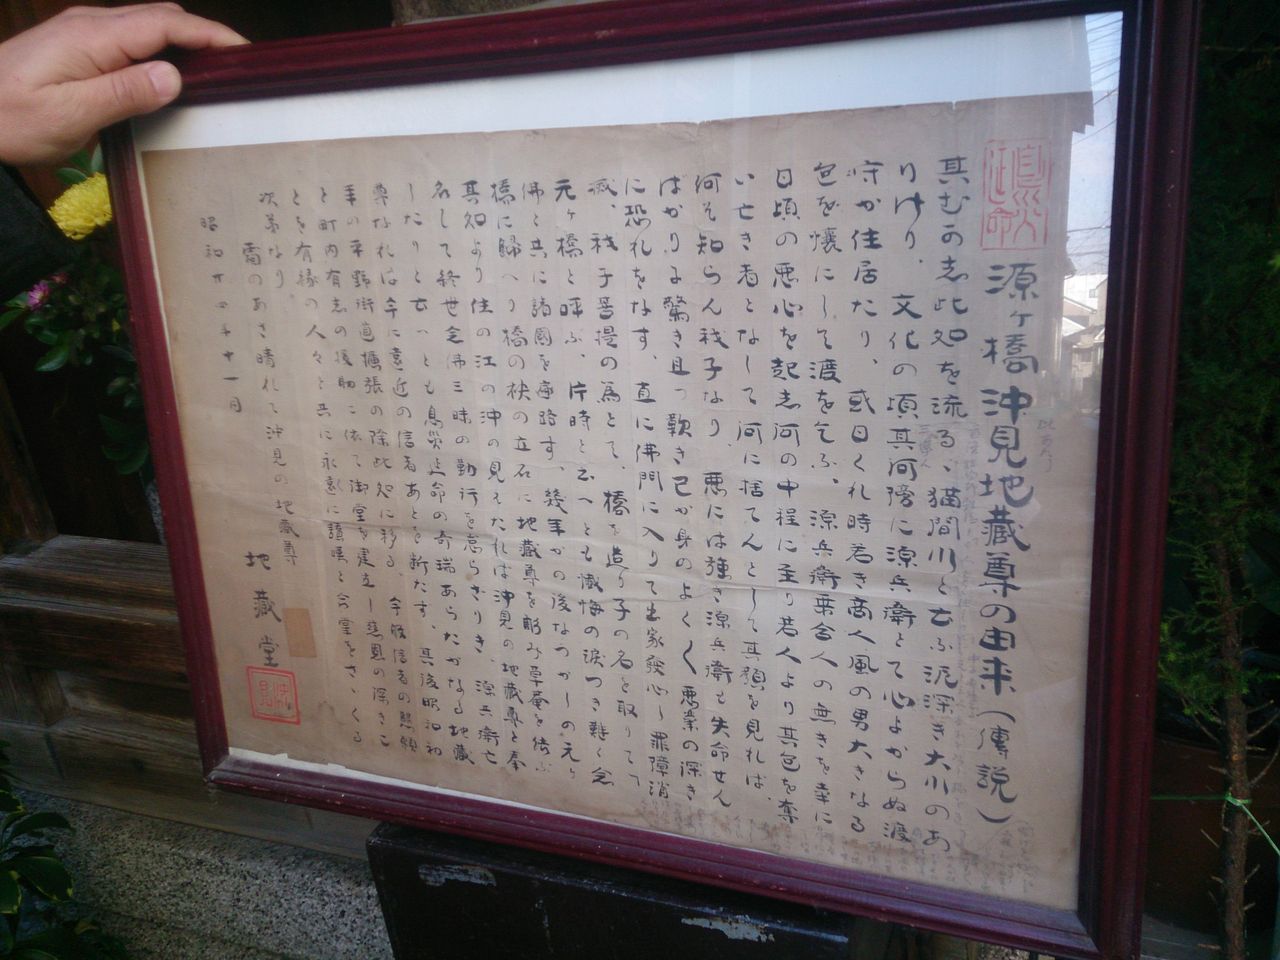 息災延命
源ヶ橋沖見地蔵尊の由来(傳説)
其むかし此処を流る、猫間川と云ふ泥深き大川のあ
りけり、文化の頃其河傍に源兵衛とて心よからぬ渡
守が住居たり、或日くれ時若き商人風の男大きなる
包を懐にして渡を乞ふ、源兵衛乗合人の無きを幸に
日頃の悪心を起し河の中程に至り若人より其包を奪
い亡き者となして河に捨てんとして其顔を見れば、
何ぞ知らん我子なり 悪には強き源兵衛も失命せん
ばかりに驚き且つ歎き己が身のよくよく悪業の深き
に恐れをなす、直に佛門に入りて出家發心し罪障消
滅、我子菩提の為とて、橋を造り子の名を取りて
元ヶ橋と呼ぶ、片時と云へども懺悔の涙つき難く念
佛と共に諸國を遍路す、幾年かの後なつかしの元ヶ
橋に歸へり橋の袂の立石に地蔵尊を彫み草庵を結ぶ
其処より住の江の沖の見えたれば沖見の地蔵尊と奉
名して終世念佛三昧の勤行を怠らざりき、源兵衛亡
したりと云へども息災延命の奇瑞あらたかなる地蔵
尊なれば今に遠近の信者あとを断たず、其後昭和初
年の幸野街道擴張の際此処に移る 今般信者の懇願
と町内有志の援助に依て御堂を建立し慈恩の深きこ
とを有縁の人々と共に永遠に讃嘆と合掌をさゝぐる
次第なり
雷のあさ晴れて沖見の地蔵尊
昭和廿四年十一月
地蔵堂